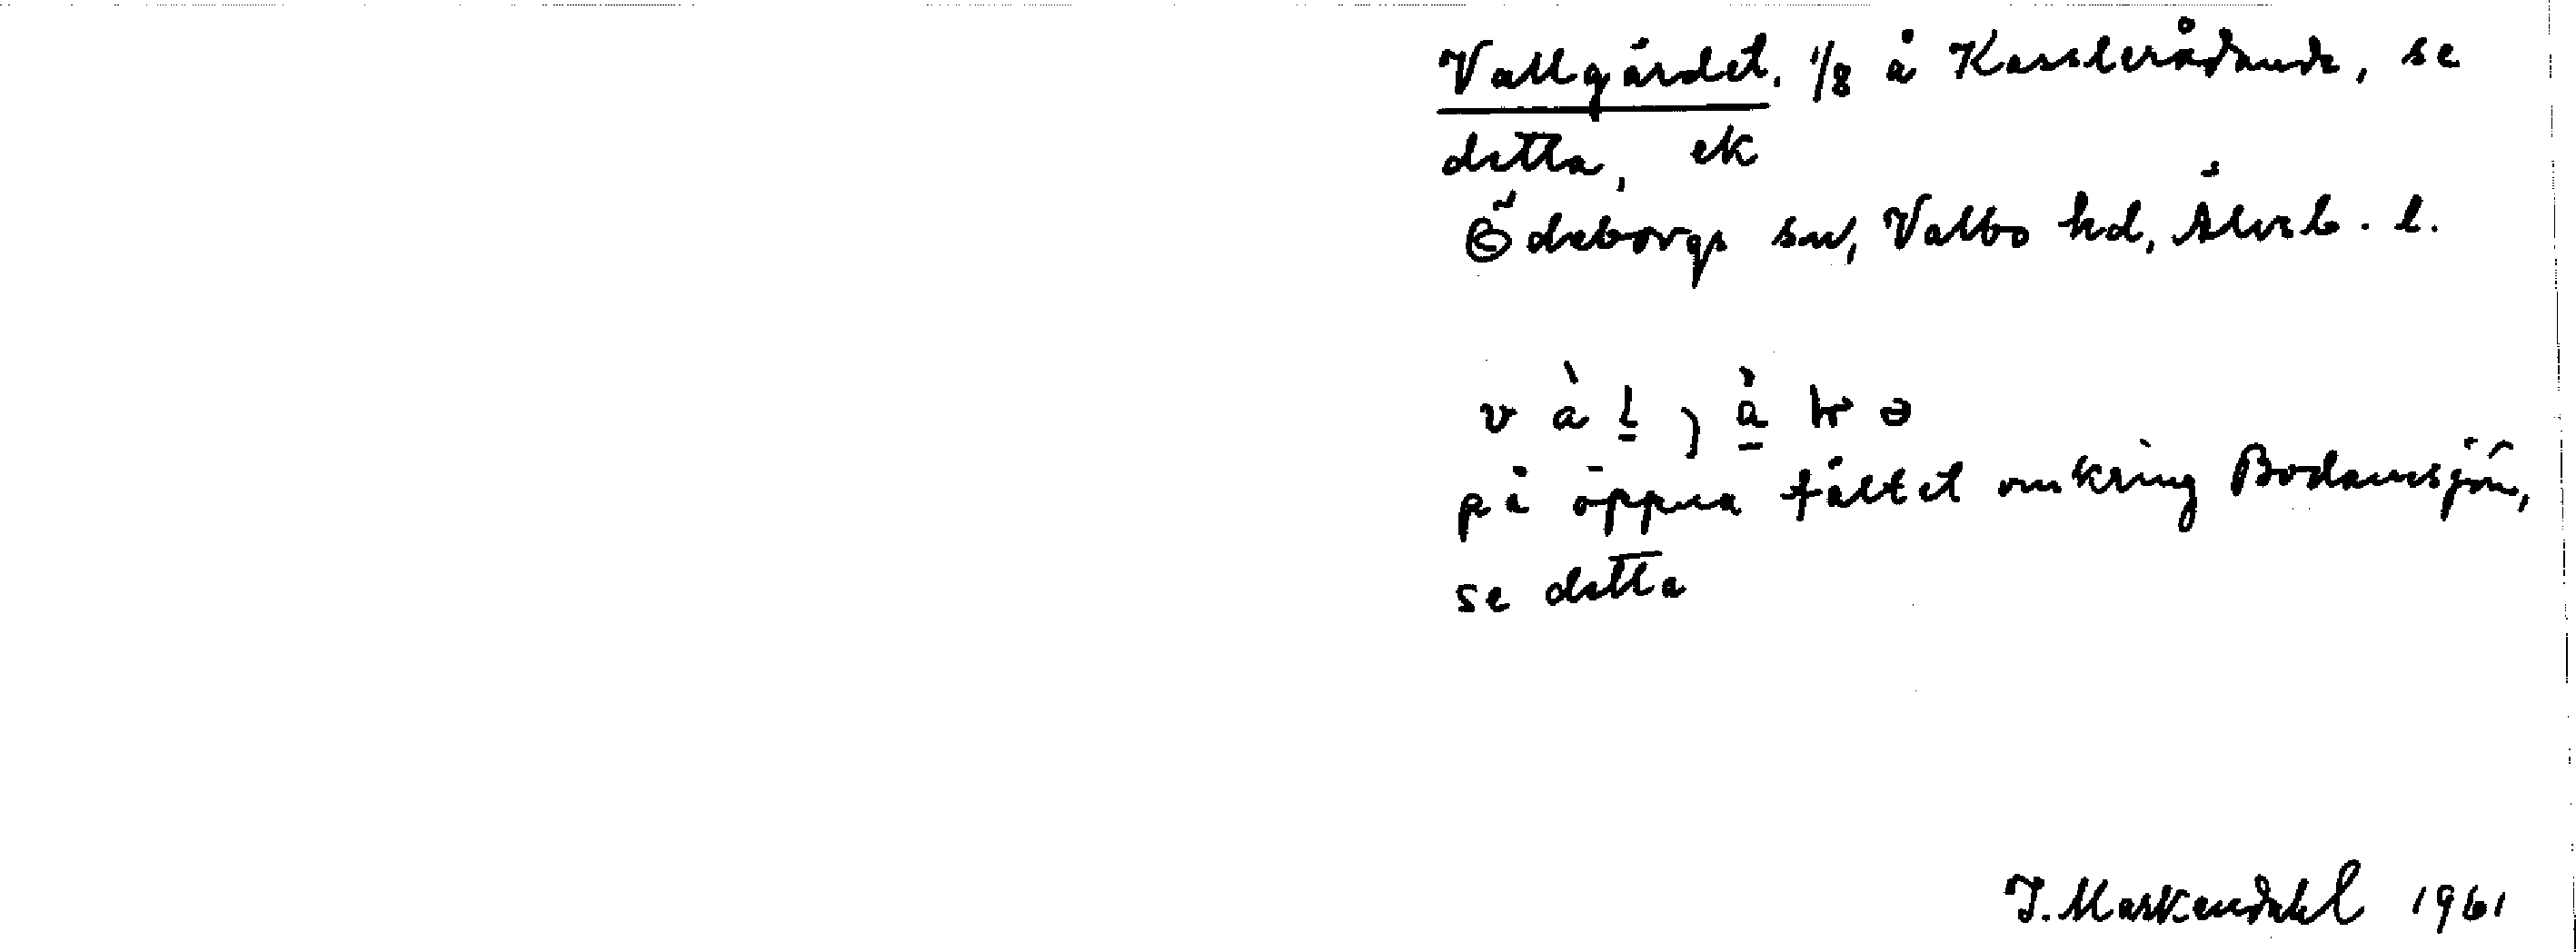 Vallgärdet. 1/8 å Kasslerådande, se
detta, ek
Ödeborgs sn, Valbo hd, Älvsb. l.
på öppna fältet omkring Bodanesjön,
se detta
J. Markendahl 1961